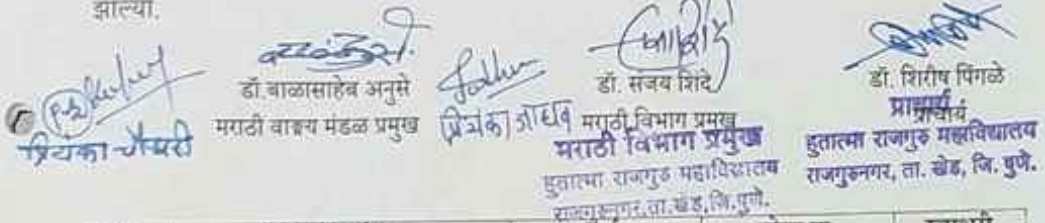 झाल्या.
प्रियंका चौधरी
डॉ.बाळासाहेब अनुसे
मराठी वाङ्मय मंडळ प्रमुख
प्रियंका जाधव
डॉ. संजय शिंदे
मराठी विभाग प्रमुख
मराठी विभाग प्रमुख
हुतात्मा राजगुरु महाविद्यालय
राजगुरुनगर, ता. खेड, जि. पुणे.
डॉ. शिरीष पिंगळे
प्राचार्य
प्राचार्य
हुतात्मा राजगुरु महाविद्यालय
राजगुरुनगर, ता. खेड, जि. पुणे.